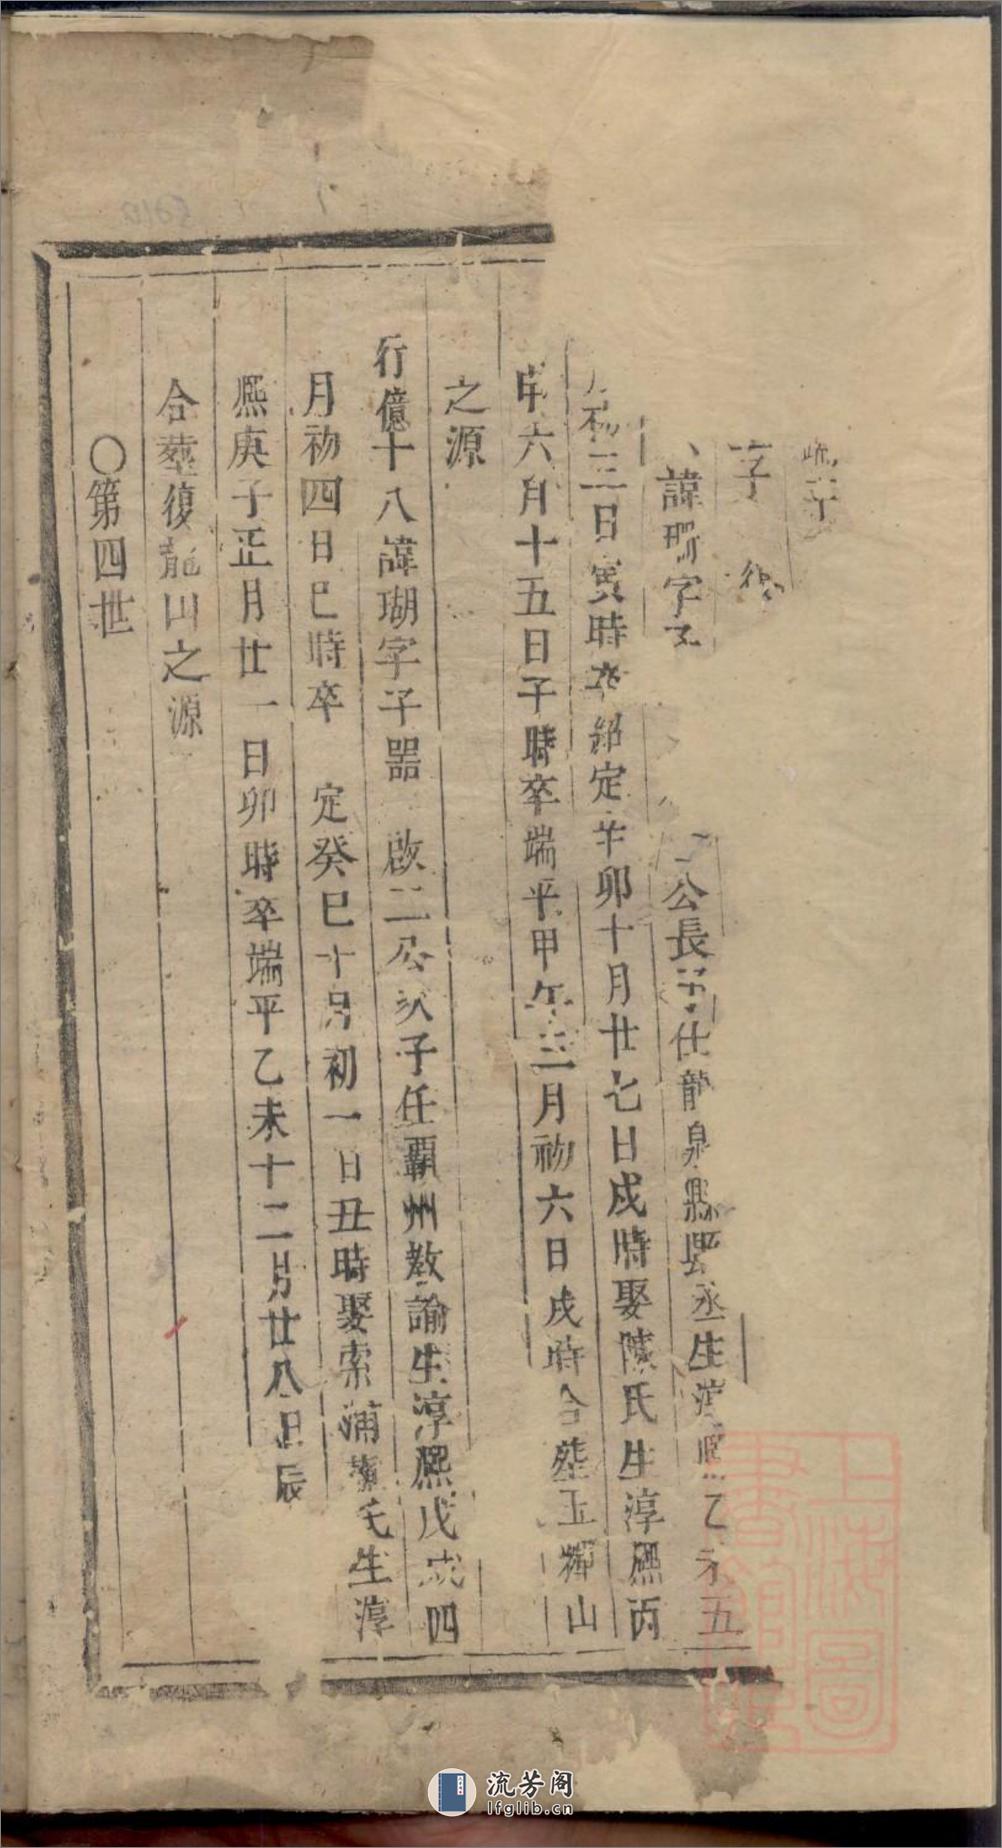 字
諱 字子 公長子仕龍泉縣 丞生淳熙乙未五
月初三日寅時卒紹定辛卯十月廿七日戌時娶陳氏生淳熙丙
申六月十五日子時卒端平甲午三月初六日戌時合塟玉 山
之源
行億十八諱瑚字子器 啟二公次子任覇州教諭生淳熈戊戌四
月初四日巳時卒 定癸巳十月初一日丑時娶索蒲 氏生淳
熈庚子正月廿一日卯時卒端平乙未十二月廿八日辰
合塟復龍山之源
○第四世
上海圖書館藏
流芳阁
lfglib.cn